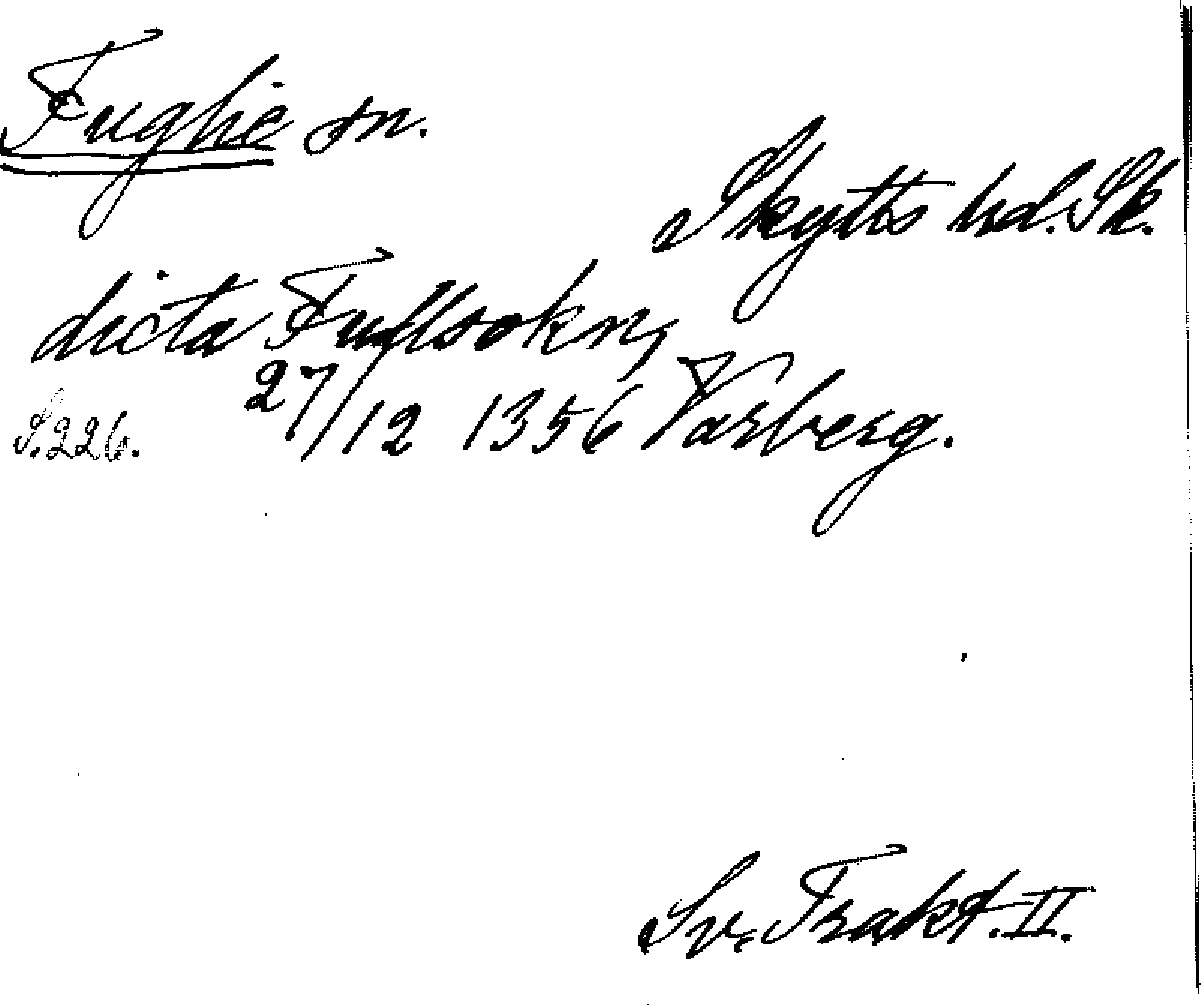 Fuglie sn.
Skytts hd. Sk.
dicta Fullsokn,
27/12 1356 Varberg.
S. 226.
Sv. Trakt. II.